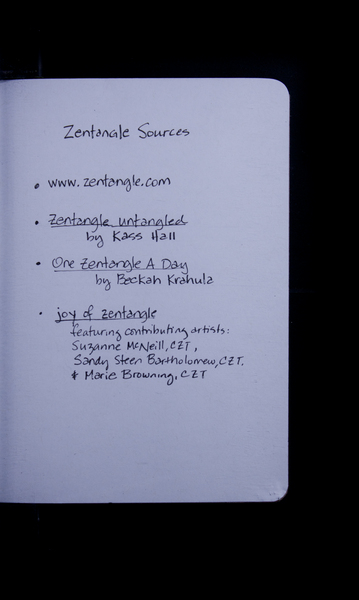 Zentangle Sources
• www.zentangle.com
• Zentangle untangled
by Kass Hall
• One Zentangle A Day
by Beckah Krahula
• joy of zentangle
featuring contributing artists:
Suzanne McNeill, CZT,
Sandy Steen Bartholomew, CZT.
& Marie Browning, CZT